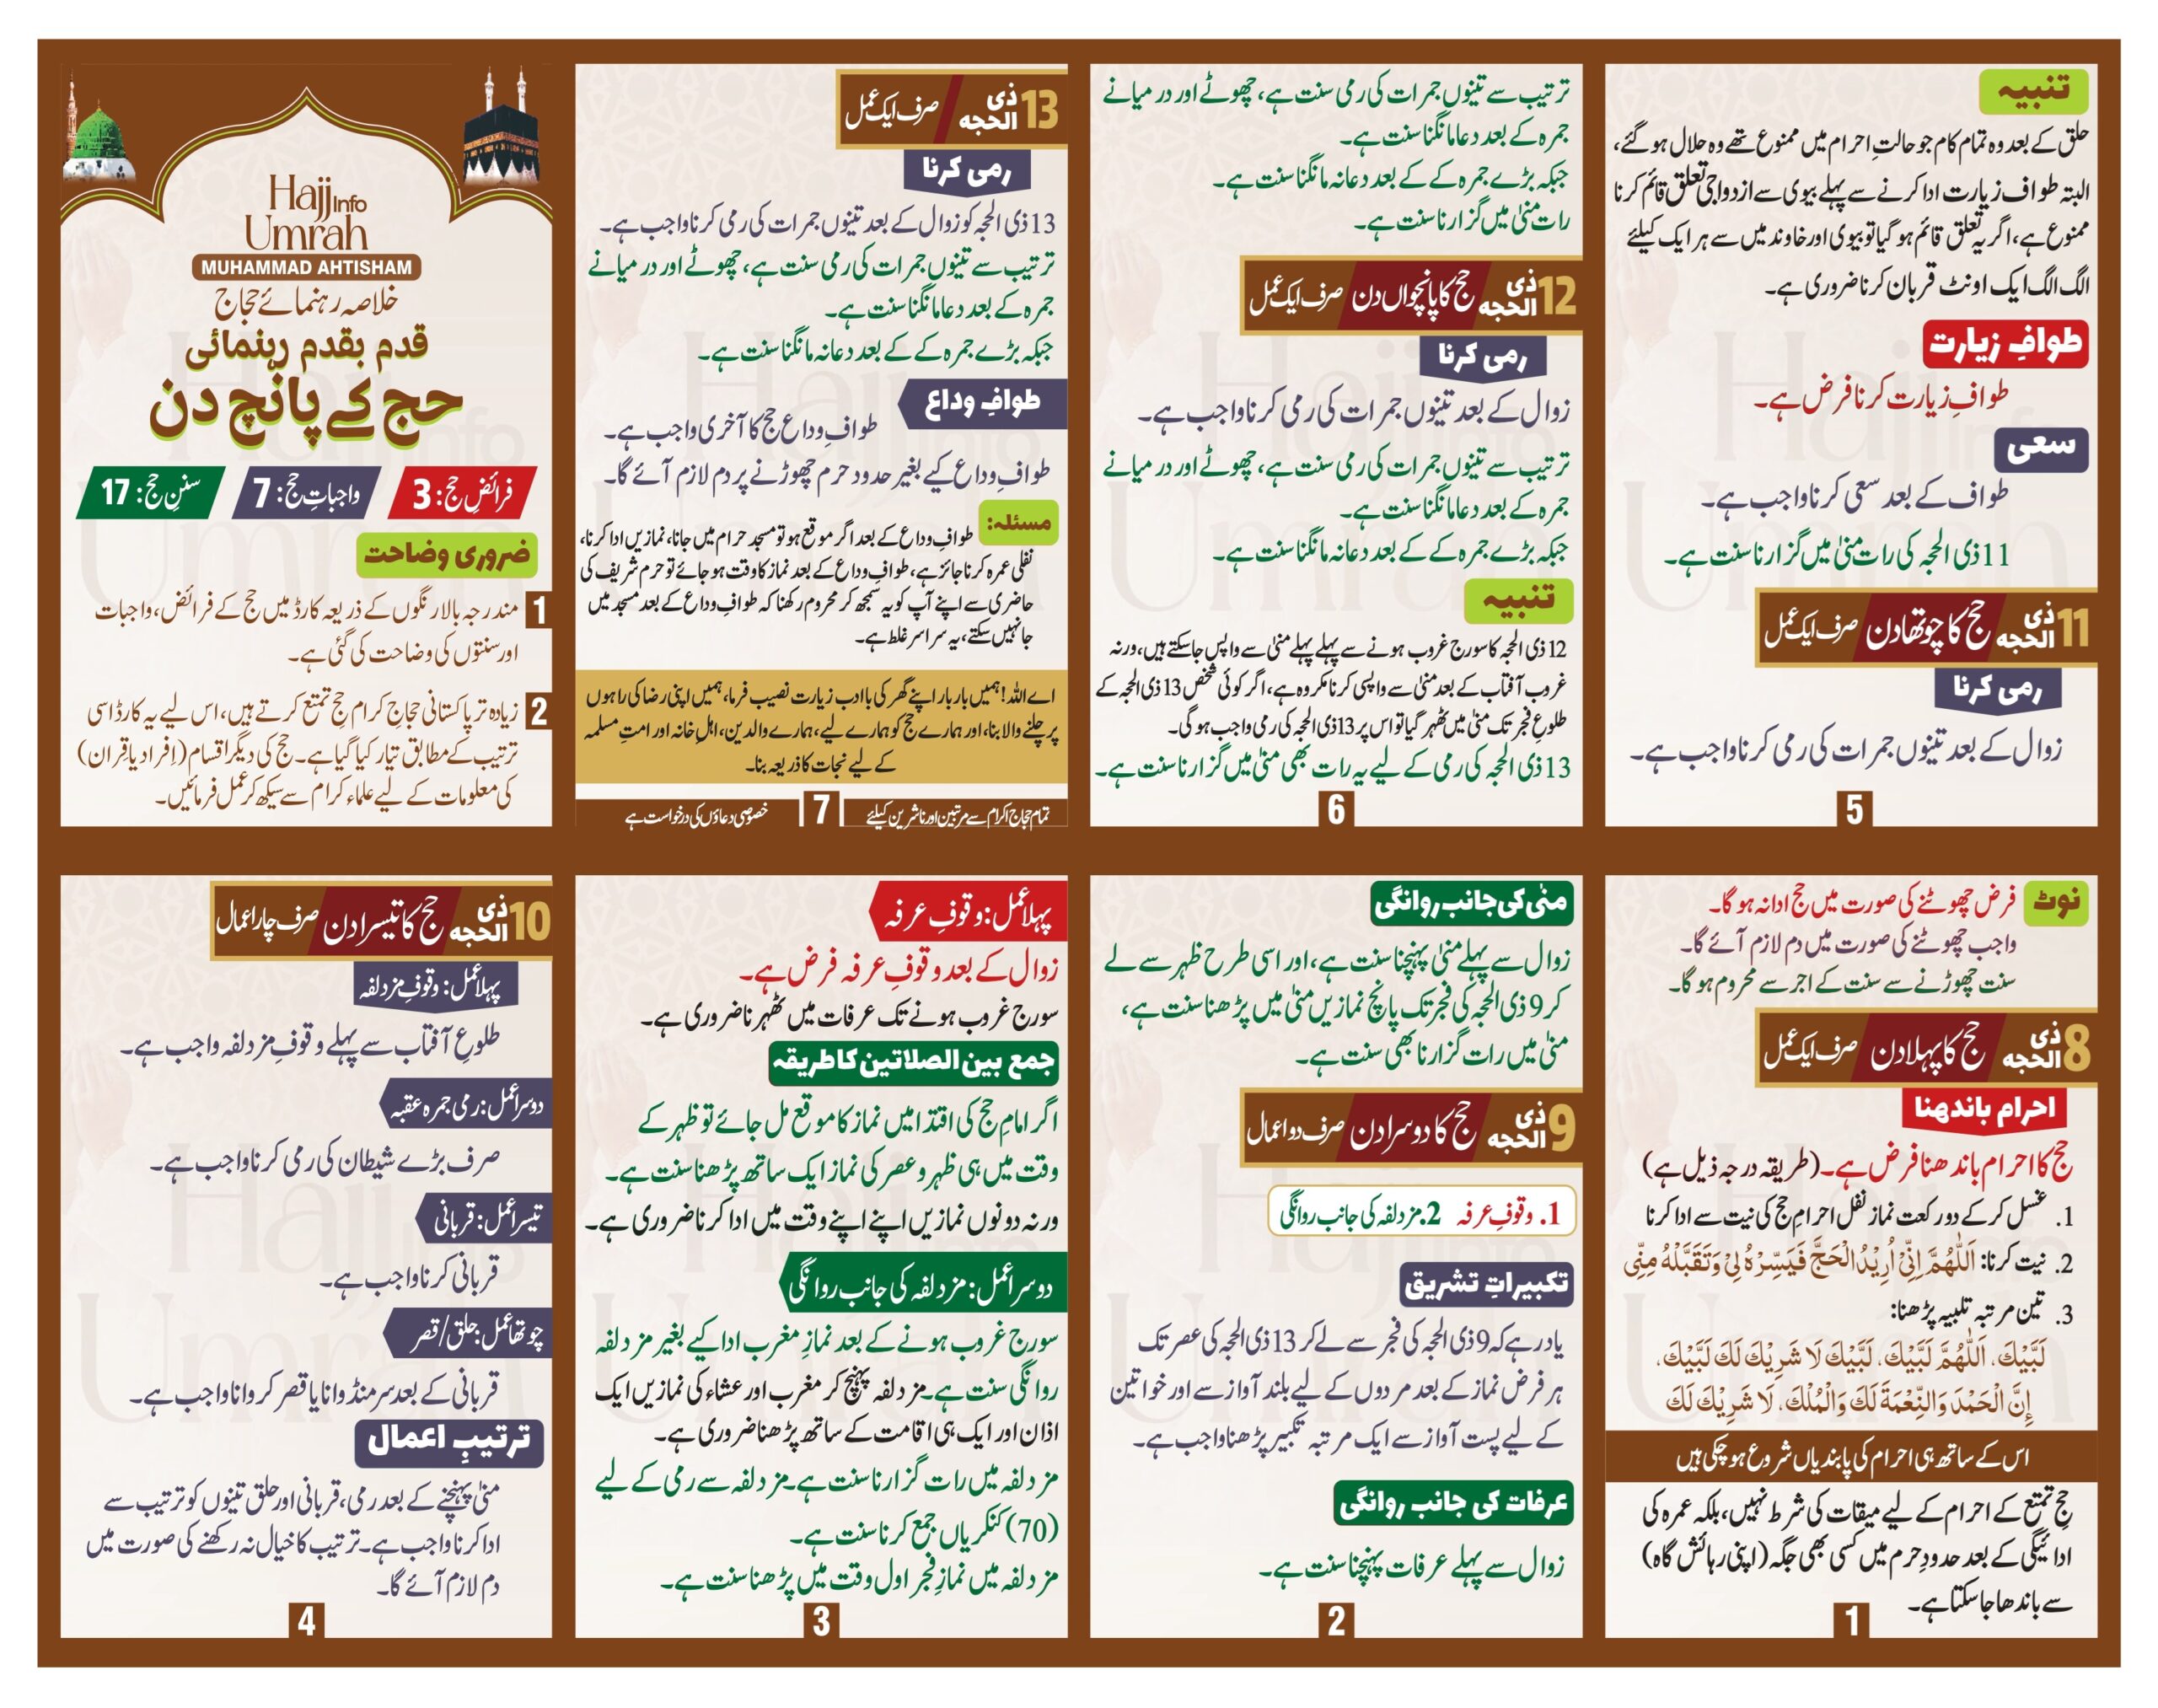 Hajj Info
Umrah
MUHAMMAD AHTISHAM
خلاصہ رہنمائے حجاج
قدم بقدم رہنمائی
حج کے پانچ دن
فرائضِ حج: 3
واجباتِ حج: 7
سننِ حج: 17
ضروری وضاحت
1 مندرجہ بالا رنگوں کے ذریعہ کارڈ میں حج کے فرائض، واجبات
اور سنتوں کی وضاحت کی گئی ہے۔
2 زیادہ تر پاکستانی حجاجِ کرام حجِ تمتع کرتے ہیں، اس لیے یہ کارڈ اسی
ترتیب کے مطابق تیار کیا گیا ہے۔ حج کی دیگر اقسام (اِفراد یا قِران)
کی معلومات کے لیے علماء کرام سے سیکھ کر عمل فرمائیں۔
نوٹ فرض چھوٹنے کی صورت میں حج ادا نہ ہو گا۔
واجب چھوٹنے کی صورت میں دم لازم آئے گا۔
سنت چھوڑنے سے سنت کے اجر سے محروم ہو گا۔
8 ذی الحجہ حج کا پہلا دن صرف ایک عمل
احرام باندھنا
حج کا احرام باندھنا فرض ہے۔ (طریقہ درجہ ذیل ہے)
1. غسل کر کے دو رکعت نماز نفل احرامِ حج کی نیت سے ادا کرنا
2. نیت کرنا: اَللّٰهُمَّ اِنِّیْ اُرِیْدُ الْحَجَّ فَیَسِّرْهُ لِیْ وَتَقَبَّلْهُ مِنِّیْ
3. تین مرتبہ تلبیہ پڑھنا:
لَبَّيْكَ، اَللّٰهُمَّ لَبَّيْكَ، لَبَّيْكَ لَا شَرِيْكَ لَكَ لَبَّيْكَ،
إِنَّ الْحَمْدَ وَالنِّعْمَةَ لَكَ وَالْمُلْكَ، لَا شَرِيْكَ لَكَ
اس کے ساتھ ہی احرام کی پابندیاں شروع ہو چکی ہیں
حجِ تمتع کے احرام کے لیے میقات کی شرط نہیں، بلکہ عمرہ کی
ادائیگی کے بعد حدودِ حرم میں کسی بھی جگہ (اپنی رہائش گاہ)
سے باندھا جاسکتا ہے۔
1
منیٰ کی جانب روانگی
زوال سے پہلے منیٰ پہنچنا سنت ہے، اور اسی طرح ظہر سے لے
کر 9 ذی الحجہ کی فجر تک پانچ نمازیں منیٰ میں پڑھنا سنت ہے،
منیٰ میں رات گزارنا بھی سنت ہے۔
9 ذی الحجہ حج کا دوسرا دن صرف دو اعمال
1. وقوفِ عرفہ 2. مزدلفہ کی جانب روانگی
تکبیراتِ تشریق
یاد رہے کہ 9 ذی الحجہ کی فجر سے لے کر 13 ذی الحجہ کی عصر تک
ہر فرض نماز کے بعد مردوں کے لیے بلند آواز سے اور خواتین
کے لیے پست آواز سے ایک مرتبہ تکبیر پڑھنا واجب ہے۔
عرفات کی جانب روانگی
زوال سے پہلے عرفات پہنچنا سنت ہے۔
2
پہلا عمل: وقوفِ عرفہ
زوال کے بعد وقوفِ عرفہ فرض ہے۔
سورج غروب ہونے تک عرفات میں ٹھہرنا ضروری ہے۔
جمع بین الصلاتین کا طریقہ
اگر امامِ حج کی اقتدا میں نماز کا موقع مل جائے تو ظہر کے
وقت میں ہی ظہر و عصر کی نماز ایک ساتھ پڑھنا سنت ہے۔
ورنہ دونوں نمازیں اپنے اپنے وقت میں ادا کرنا ضروری ہے۔
دوسرا عمل: مزدلفہ کی جانب روانگی
سورج غروب ہونے کے بعد نمازِ مغرب ادا کیے بغیر مزدلفہ
روانگی سنت ہے۔ مزدلفہ پہنچ کر مغرب اور عشاء کی نمازیں ایک
اذان اور ایک ہی اقامت کے ساتھ پڑھنا ضروری ہے۔
مزدلفہ میں رات گزارنا سنت ہے۔ مزدلفہ سے رمی کے لیے
(70) کنکریاں جمع کرنا سنت ہے۔
مزدلفہ میں نمازِ فجر اول وقت میں پڑھنا سنت ہے۔
3
10 ذی الحجہ حج کا تیسرا دن صرف چار اعمال
پہلا عمل: وقوفِ مزدلفہ
طلوعِ آفتاب سے پہلے وقوفِ مزدلفہ واجب ہے۔
دوسرا عمل: رمی جمرہ عقبہ
صرف بڑے شیطان کی رمی کرنا واجب ہے۔
تیسرا عمل: قربانی
قربانی کرنا واجب ہے۔
چوتھا عمل: حلق/قصر
قربانی کے بعد سر منڈوانا یا قصر کروانا واجب ہے۔
ترتیبِ اعمال
منیٰ پہنچنے کے بعد رمی، قربانی اور حلق تینوں کو ترتیب سے
ادا کرنا واجب ہے۔ ترتیب کا خیال نہ رکھنے کی صورت میں
دم لازم آئے گا۔
4
تنبیہ
حلق کے بعد وہ تمام کام جو حالتِ احرام میں ممنوع تھے وہ حلال ہو گئے،
البتہ طوافِ زیارت ادا کرنے سے پہلے بیوی سے ازدواجی تعلق قائم کرنا
ممنوع ہے، اگر یہ تعلق قائم ہو گیا تو بیوی اور خاوند میں سے ہر ایک کیلئے
الگ الگ ایک اونٹ قربان کرنا ضروری ہے۔
طوافِ زیارت
طوافِ زیارت کرنا فرض ہے۔
سعی
طواف کے بعد سعی کرنا واجب ہے۔
11 ذی الحجہ کی رات منیٰ میں گزارنا سنت ہے۔
11 ذی الحجہ حج کا چوتھا دن صرف ایک عمل
رمی کرنا
زوال کے بعد تینوں جمرات کی رمی کرنا واجب ہے۔
5
ترتیب سے تینوں جمرات کی رمی سنت ہے، چھوٹے اور درمیانے
جمرہ کے بعد دعا مانگنا سنت ہے۔
جبکہ بڑے جمرہ کے کے بعد دعا نہ مانگنا سنت ہے۔
رات منیٰ میں گزارنا سنت ہے۔
12 ذی الحجہ حج کا پانچواں دن صرف ایک عمل
رمی کرنا
زوال کے بعد تینوں جمرات کی رمی کرنا واجب ہے۔
ترتیب سے تینوں جمرات کی رمی سنت ہے، چھوٹے اور درمیانے
جمرہ کے بعد دعا مانگنا سنت ہے۔
جبکہ بڑے جمرہ کے کے بعد دعا نہ مانگنا سنت ہے۔
تنبیہ
12 ذی الحجہ کا سورج غروب ہونے سے پہلے پہلے منیٰ سے واپس جاسکتے ہیں، ورنہ
غروب آفتاب کے بعد منیٰ سے واپسی کرنا مکروہ ہے، اگر کوئی شخص 13 ذی الحجہ کے
طلوعِ فجر تک منیٰ میں ٹھہر گیا تو اس پر 13 ذی الحجہ کی رمی واجب ہو گی۔
13 ذی الحجہ کی رمی کے لیے یہ رات بھی منیٰ میں گزارنا سنت ہے۔
6
13 ذی الحجہ صرف ایک عمل
رمی کرنا
13 ذی الحجہ کو زوال کے بعد تینوں جمرات کی رمی کرنا واجب ہے۔
ترتیب سے تینوں جمرات کی رمی سنت ہے، چھوٹے اور درمیانے
جمرہ کے بعد دعا مانگنا سنت ہے۔
جبکہ بڑے جمرہ کے کے بعد دعا نہ مانگنا سنت ہے۔
طوافِ وداع
طوافِ وداع حج کا آخری واجب ہے۔
طوافِ وداع کیے بغیر حدود حرم چھوڑنے پر دم لازم آئے گا۔
مسئلہ: طوافِ وداع کے بعد اگر موقع ہو تو مسجد حرام میں جانا، نمازیں ادا کرنا،
نفلی عمرہ کرنا جائز ہے، طوافِ وداع کے بعد نماز کا وقت ہو جائے تو حرم شریف کی
حاضری سے اپنے آپ کو یہ سمجھ کر محروم رکھنا کہ طوافِ وداع کے بعد مسجد میں
جا نہیں سکتے، یہ سراسر غلط ہے۔
اے اللہ! ہمیں بار بار اپنے گھر کی با ادب زیارت نصیب فرما، ہمیں اپنی رضا کی راہوں
پر چلنے والا بنا، اور ہمارے حج کو ہمارے لیے، ہمارے والدین، اہلِ خانہ اور امتِ مسلمہ
کے لیے نجات کا ذریعہ بنا۔
تمام حجاج اکرام سے مرتبین اور ناشرین کیلئے
7
خصوصی دعاؤں کی درخواست ہے